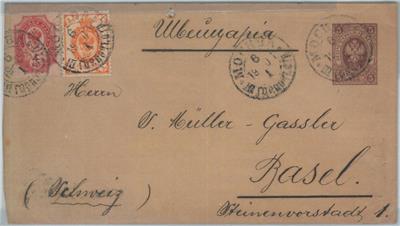 Швейцарія
МОСКВА
Herrn
J. Müller-Gassler
Basel.
(Schweiz)
Steinenvorstadt 1.
5